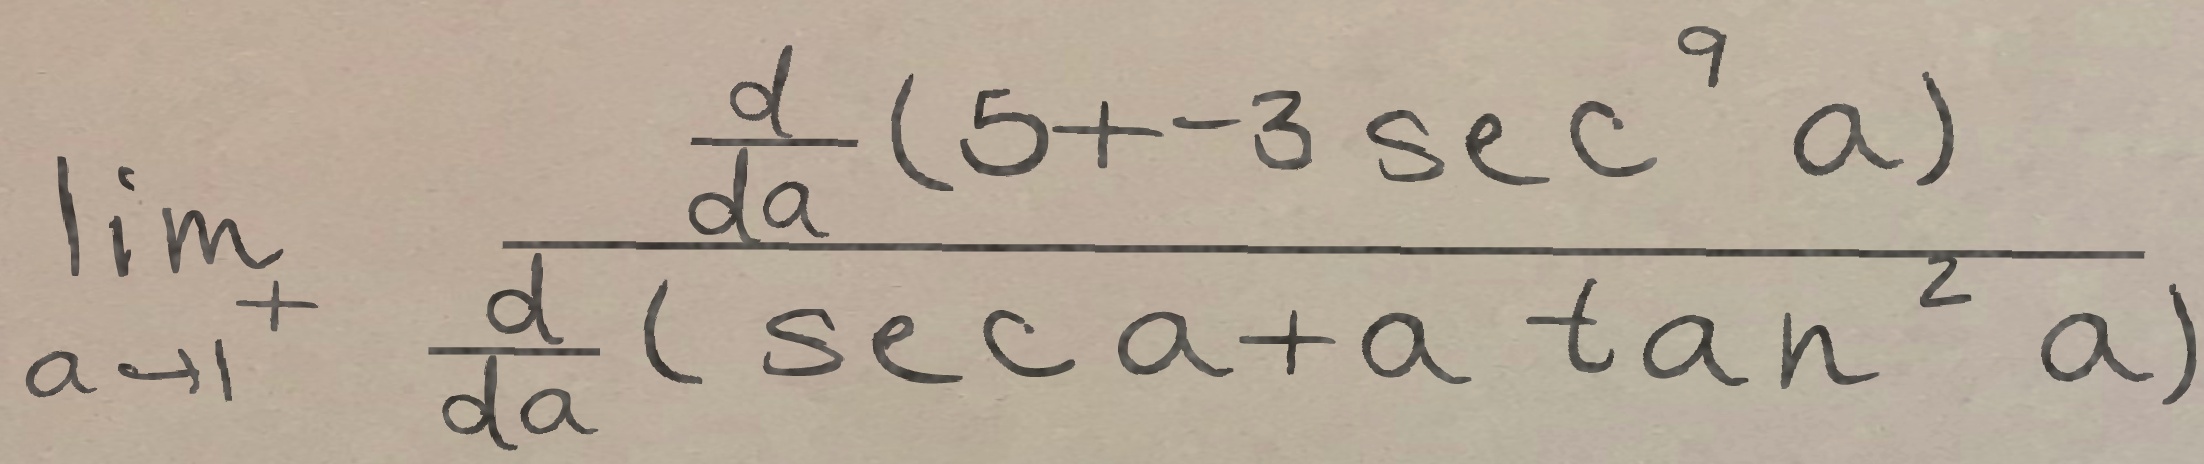 \lim_{a \to 1^{+}} \frac{\frac{d}{da}(5+-3\sec^{9}a)}{\frac{d}{da}(\sec a+a\tan^{2}a)}